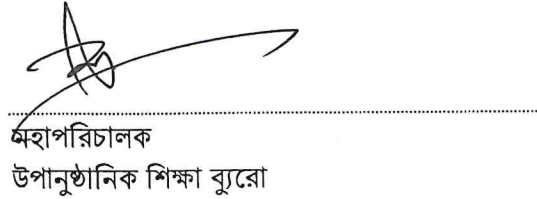 মহাপরিচালক
উপানুষ্ঠানিক শিক্ষা ব্যুরো